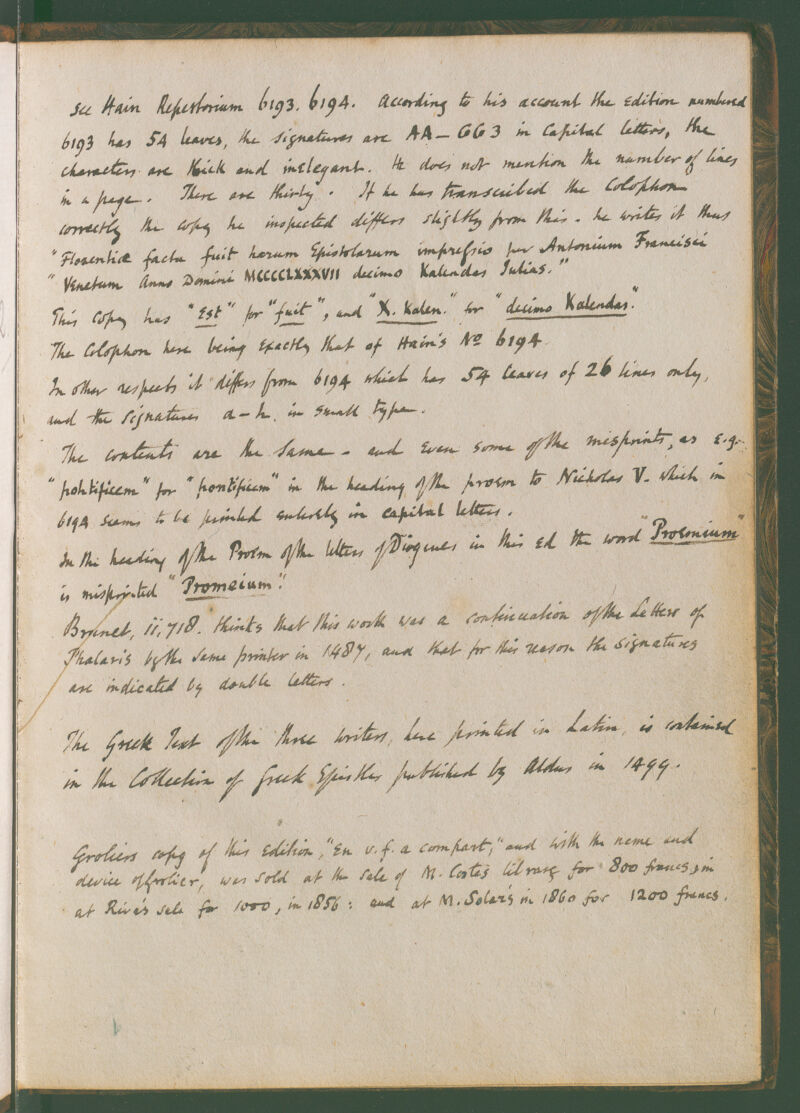 see Hain Repertorium 6193. 6194. According to his account the Edition numbered
6193 has 54 leaves, the signatures are AA – GG 3 in Capital letters, the
characters are thick and inelegant. He does not mention the number of lines
in a page. There are thirty. If he has transcribed the Colophon
correctly the copy he inspected differs slightly from this – he writes it thus
"Florentiæ facta fuit harum Epistolarum impressio per Antonium Francisci
"Venetum Anno Domini MCCCCLXXXVII decimo Kalendas Iulias."
This Copy has "Est" for "fuit", and "X. Kalen." for "decimo Kalendas".
The Colophon here being exactly that of Hain's No 6194.
In other respects it differs from 6194 which has 54 leaves of 26 lines only,
and the signatures a–h. in small type.
The contents are the same – and even some of the misprints, as e.g.
"pohtificem" for "pontificem" in the heading of the proem to Nicholas V. which in
6194 seems to be printed entirely in capital letters.
In the heading of the Proem of the letters of Diogenes in this Ed the word "Proemium"
is misprinted "Promeium".
Brunet, ii, 718. thinks that this work was a continuation of the Letters of
Phalaris by the same printer in 1487, and that for this reason the signatures
are indicated by double letters.
The Greek Text of the three writers, here printed in Latin, is contained
in the Collection of Greek Epistles published by Aldus in 1499.
Groliers copy of this Edition, "En v.f. a compart," and with the name and
device of Grolier, was sold at the sale of M. Costes library for 800 francs, in
at Riva's sale for 1000, in 1856: and at M. Solar's in 1860 for 1200 francs.